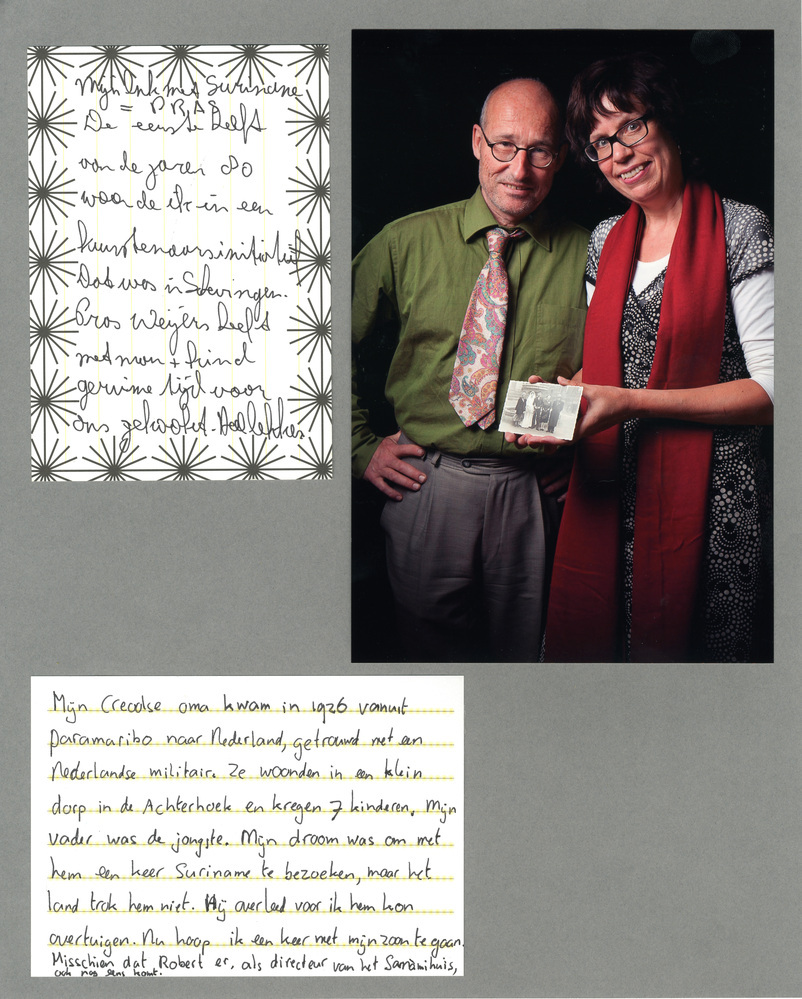 Mijn link met Suriname
= PRAS
De eerste helft
van de jaren 80
woonde ik in een
kunstenaarsinitiatief
Dat was in Schevingen.
Pras Weijers heeft
met man + kind
geruime tijd voor
ons gekookt.
Mijn Creoolse oma kwam in 1926 vanuit
Paramaribo naar Nederland, getrouwd met een
Nederlandse militair. Ze woonden in een klein
dorp in de Achterhoek en kregen 7 kinderen. Mijn
vader was de jongste. Mijn droom was om met
hem een keer Suriname te bezoeken, maar het
land trok hem niet. Hij overleed voor ik hem kon
overtuigen. Nu hoop ik een keer met mijn zoon te gaan.
Misschien dat Robert er, als directeur van het Sarnámihuis,
ook nog eens komt.